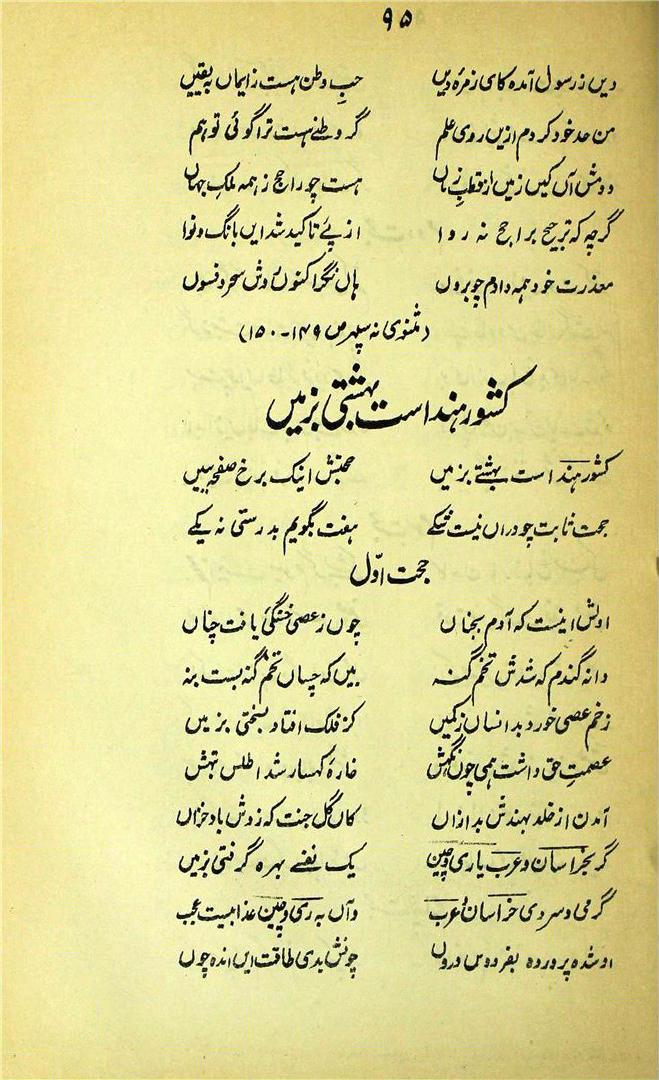 ۹۵
دیں ز رسول آمدہ کای زمرۂ دیں حبِ وطن ہست ز ایماں بہ یقیں
من حد خود کردم ازیں روی علم گر وطنے ہست ترا گوئی تو ہم
دومش آں کیں زمیں از قطب زماں ہست چو راجح ز ہمہ ملک جہاں
گرچہ کہ ترجیح براجح نہ روا از پئے تاکید شد ایں بانگ و نوا
معذرت خود ہمہ دادم چو بروں ہاں نگرا کنوں روش سحر و فسوں
(مثنوی نہ سپہر ص ۱۴۹-۱۵۰)
کشور ہند است بہشتی بزمیں
کشور ہند است بہشتے بزمیں حجتش اینک برخ صفحہ ببیں
حجت ثابت چو دراں نیست شکے ہفت بگویم بدرستی نہ یکے
حجت اوّل
اولش اینست کہ آدم بجناں چوں ز عصی خستگئی یافت چناں
دانہ گندم کہ شدش تخم گنہ بیں کہ چساں تخم گنہ بست بنہ
زخم عصی خورد بدانساں ز کمیں کز فلک افتاد بسختی بزمیں
عصمت حق داشت ہمی چون نگہش خارۂ کہسار شد اطلس تہش
آمدن از خلد بہندش بد ازاں کاں گل جنت کہ زوش باد خزاں
گر بخراسان و عرب یا ری و چین یک نفسے بہرہ گرفتی بزمیں
گرمی و سردی خراسان و عرب وآں بہ ری و چین عذابیست عجب
او شدہ پروردہ بفردوس دروں چونش بدی طاقت ایں اندہ چوں